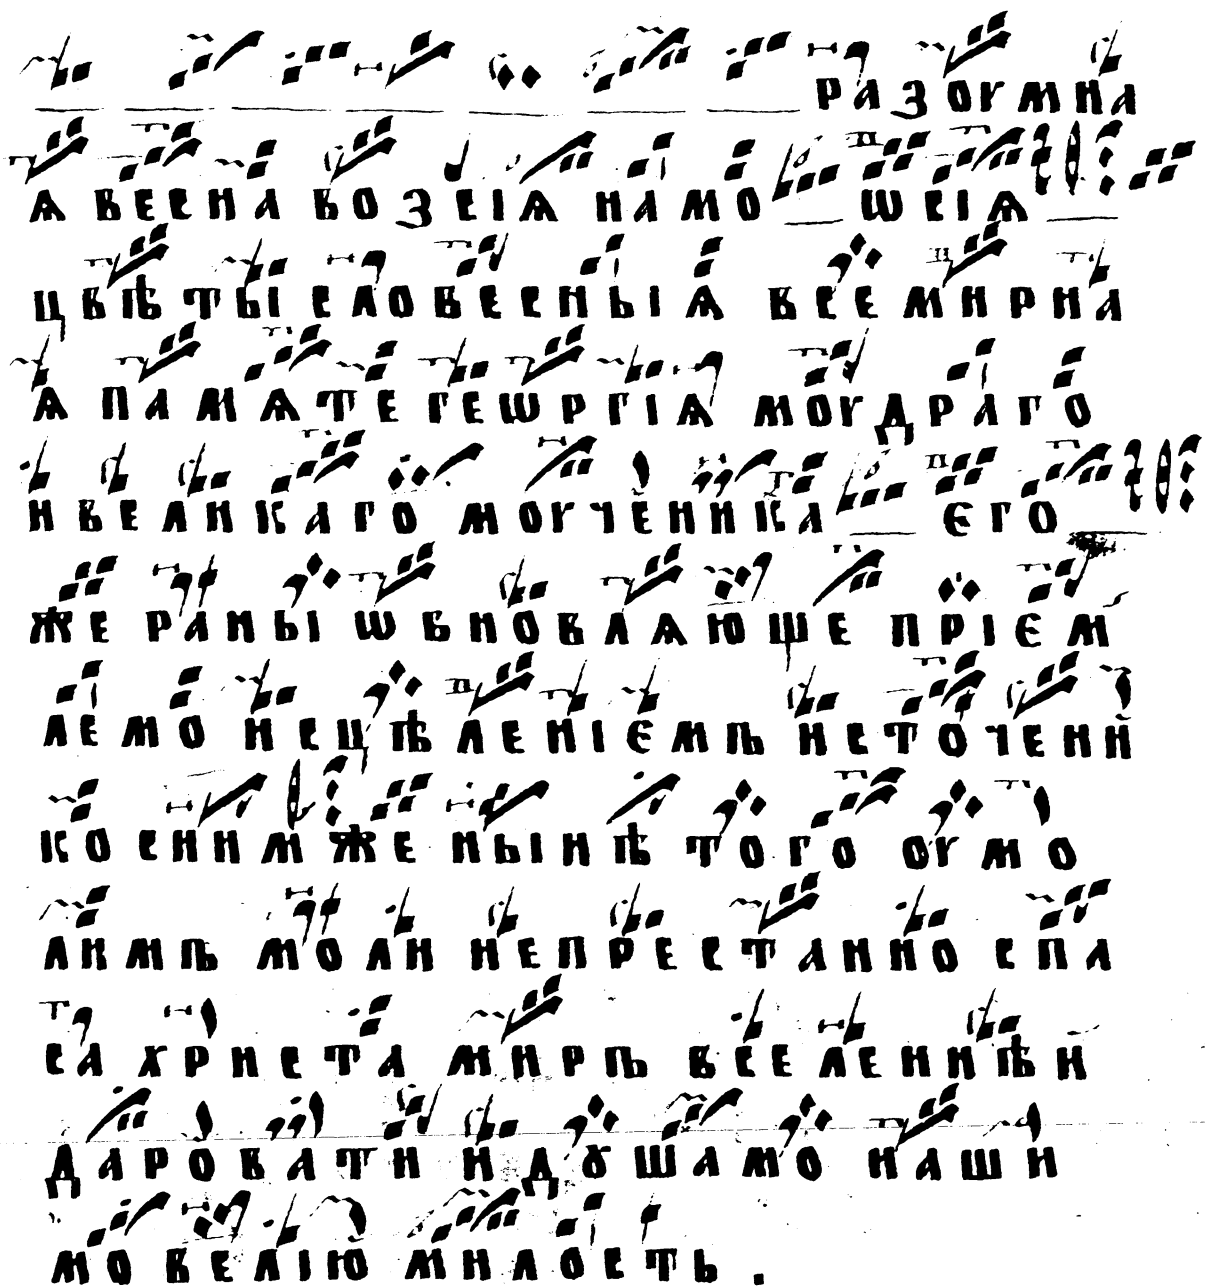 разоумна
ѧ весна возсіѧ намо ѡсіѧ
цвѣты словесныѧ всемирна
ѧ памѧте геѡргіѧ моудраго
ивеликаго моученика єго
же раны ѡбновлѧюще прієм
лемо исцѣленіємъ источени
ко снимже нынѣ того оумо
лимъ моли непрестанно спа
са христа миръ вселеннѣи
даровати и дꙋшамо наши
мо велію милость .